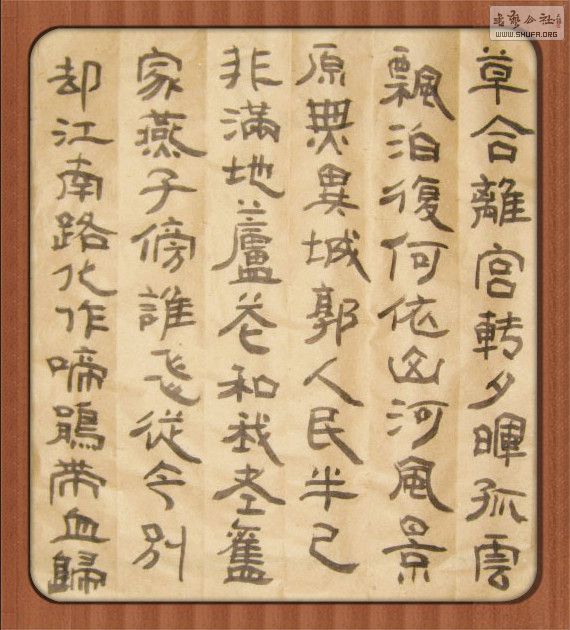 書藝公社
WWW.SHUFA.ORG
草合離宮轉夕暉孤雲
飄泊復何依山河風景
原無異城郭人民半已
非滿地蘆花和我老舊
家燕子傍誰飛從今別
却江南路化作啼鵑帶血歸